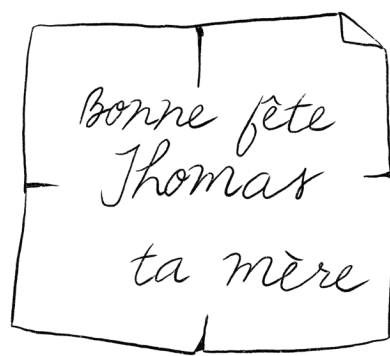 Bonne fête
Thomas
ta mère